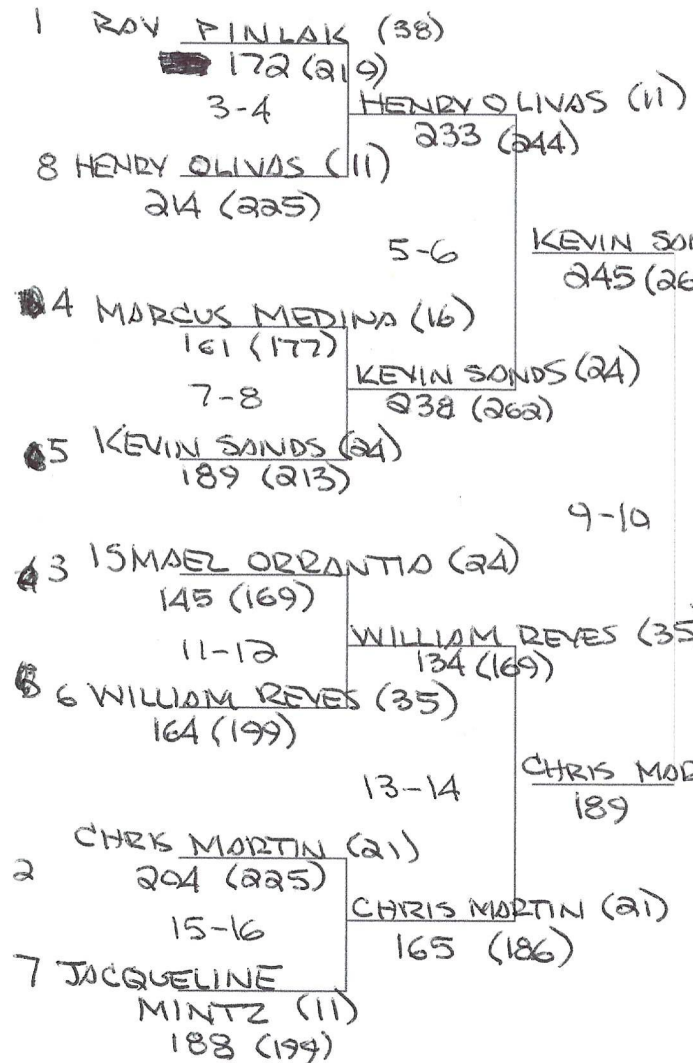 1 RAY PINLAK (38)
172 (210)
3-4
HENRY OLIVAS (11)
233 (244)
8 HENRY OLIVAS (11)
214 (225)
5-6
KEVIN SAN
245 (26
4 MARCUS MEDINA (16)
161 (177)
7-8
KEVIN SANDS (24)
238 (262)
5 KEVIN SANDS (24)
189 (213)
9-10
3 ISMAEL ORRANTIA (24)
145 (169)
11-12
WILLIAM REYES (35
134 (169)
6 WILLIAM REYES (35)
164 (199)
13-14
CHRIS MAR
189
2 CHRIS MARTIN (21)
204 (225)
15-16
CHRIS MARTIN (21)
165 (186)
7 JACQUELINE
MINTZ (11)
188 (199)